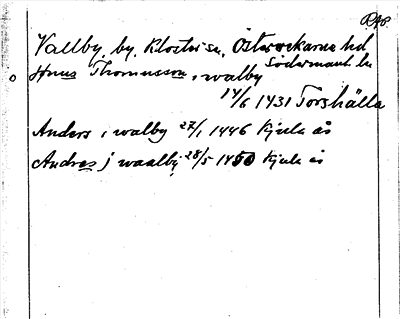 Vallby, by, Kloster sn, Österrekarne hd
Södermanl. ln
Hans Thomasson, i walby
14/6 1431 Torshälla
Anders, i walby 27/1 1446 Kjula ås
Andres j waalby 28/5 1450 Kjula ås